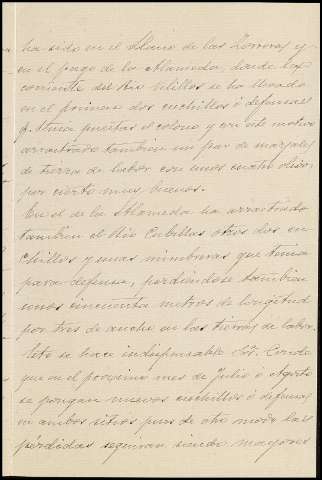 ha sido en el Llano de las Zorreras y
en el pago de la Alameda, donde la
corriente del Rio Velillos se ha llevado
en el primero dos cuchillos ó defensas
q. tenia puestas el colono y con este motivo
arrastrado tambien un par de marjales
de tierra de labor con unos cuatro olivos
por cierto muy buenos.
En el de la Alameda ha arrastrado
tambien el Rio Cubillas otros dos cu
chillos y unas mimbreras que tenia
para defensa, perdiendose tambien
unos cincuenta metros de longitud
por tres de ancho en las tierras de labor.
Esto se hace indispensable Sor. Conde
que en el proximo mes de Julio ó Agosto
se pongan nuevos cuchillos ó defensas
en ambos sitios pues de otro modo las
pérdidas seguiran siendo mayores